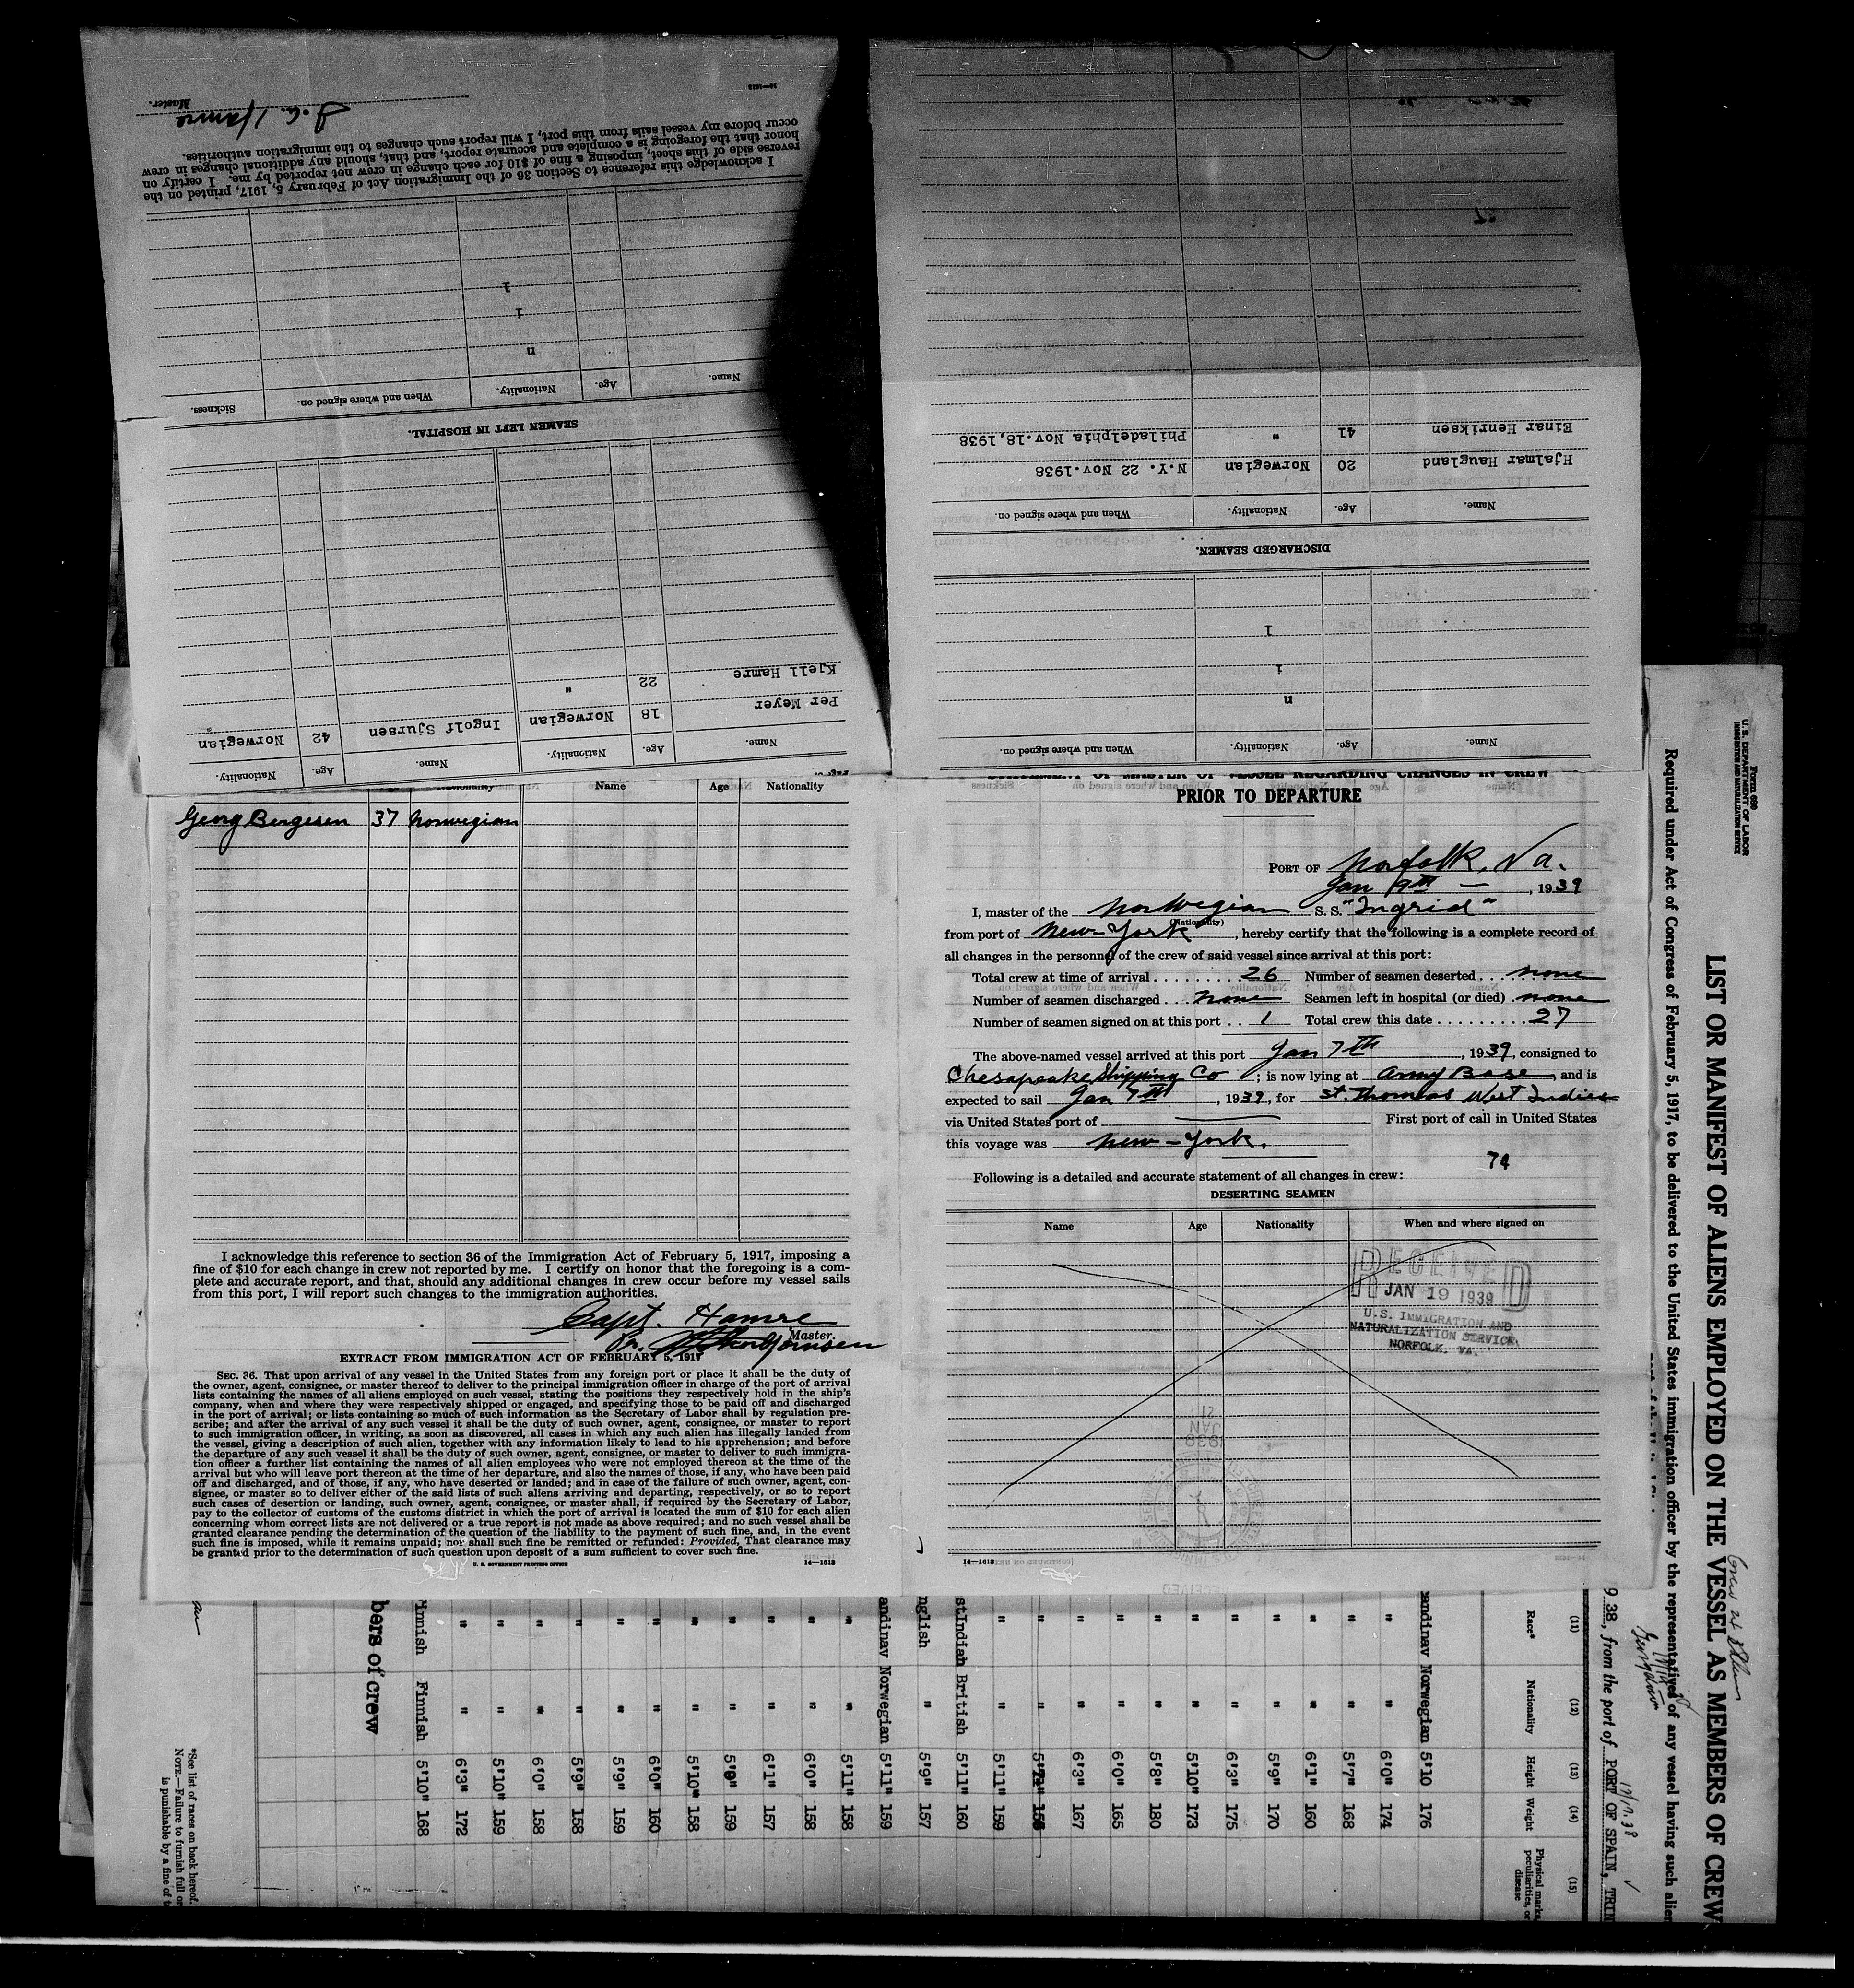 Master.
I acknowledge this reference to Section 36 of the Immigration Act of February 5, 1917, printed on the
reverse side of this sheet, imposing a fine of $10 for each change in crew not reported by me. I certify on
honor that the foregoing is a complete and accurate report, and that, should any additional changes in crew
occur before my vessel sails from this port, I will report such changes to the immigration authorities.
Hamre
Name. Age. Nationality. When and where signed on. Sickness.
n
i
l
SEAMEN LEFT IN HOSPITAL.
Name. Age. Nationality. Name. Age. Nationality.
Per Meyer 18 Norwegian Ingolf Sjursen 42 Norwegian
Kjell Hamre 22 "
Name. Age. Nationality. When and where signed on.
n
i
l
DISCHARGED SEAMEN.
Name. Age. Nationality. When and where signed on.
Hjalmar Haugland 20 Norwegian N.Y. 22 Nov.1938
Einar Henriksen 41 " Philadelphia Nov.18,1938
Nationality Name Age Nationality
Georg Bergesen 37 Norwegian
I acknowledge this reference to section 36 of the Immigration Act of February 5, 1917, imposing a
fine of $10 for each change in crew not reported by me. I certify on honor that the foregoing is a com-
plete and accurate report, and that, should any additional changes in crew occur before my vessel sails
from this port, I will report such changes to the immigration authorities.
Capt. Hamre
Master.
EXTRACT FROM IMMIGRATION ACT OF FEBRUARY 5, 1917
SEC. 36. That upon arrival of any vessel in the United States from any foreign port or place it shall be the duty of
the owner, agent, consignee, or master thereof to deliver to the principal immigration officer in charge of the port of arrival
lists containing the names of all aliens employed on such vessel, stating the positions they respectively hold in the ship's
company, when and where they were respectively shipped or engaged, and specifying those to be paid off and discharged
in the port of arrival; or lists containing so much of such information as the Secretary of Labor shall by regulation pre-
scribe; and after the arrival of any such vessel it shall be the duty of such owner, agent, consignee, or master to report
to such immigration officer, in writing, as soon as discovered, all cases in which any such alien has illegally landed from
the vessel, giving a description of such alien, together with any information likely to lead to his apprehension; and before
the departure of any such vessel it shall be the duty of such owner, agent, consignee, or master to deliver to such immigra-
tion officer a further list containing the names of all alien employees who were not employed thereon at the time of the
arrival but who will leave port thereon at the time of her departure, and also the names of those, if any, who have been paid
off and discharged, and of those, if any, who have deserted or landed; and in case of the failure of such owner, agent, con-
signee, or master so to deliver either of the said lists of such aliens arriving and departing, respectively, or so to report
such cases of desertion or landing, such owner, agent, consignee, or master shall, if required by the Secretary of Labor,
pay to the collector of customs of the customs district in which the port of arrival is located the sum of $10 for each alien
concerning whom correct lists are not delivered or a true report is not made as above required; and no such vessel shall be
granted clearance pending the determination of the question of the liability to the payment of such fine, and, in the event
such fine is imposed, while it remains unpaid; nor shall such fine be remitted or refunded: Provided, That clearance may
be granted prior to the determination of such question upon deposit of a sum sufficient to cover such fine.
U. S. GOVERNMENT PRINTING OFFICE 14—1613
STATEMENT OF MASTER OF VESSEL REGARDING CHANGES IN CREW
PRIOR TO DEPARTURE
PORT OF Norfolk, Va.
Jan 9th — , 1939
I, master of the Norwegian S. S. "Ingrid"
(Nationality)
from port of New-York , hereby certify that the following is a complete record of
all changes in the personnel of the crew of said vessel since arrival at this port:
Total crew at time of arrival ........ 26 Number of seamen deserted ... none
Number of seamen discharged .. none Seamen left in hospital (or died) none
Number of seamen signed on at this port .. 1 Total crew this date ......... 27
The above-named vessel arrived at this port Jan 7th , 1939, consigned to
Chesapeake Shipping Co ; is now lying at Army Base , and is
expected to sail Jan 7th , 1939, for St. Thomas West Indies
via United States port of — First port of call in United States
this voyage was New-York.
74
Following is a detailed and accurate statement of all changes in crew:
DESERTING SEAMEN
Name Age Nationality When and where signed on
RECEIVED
JAN 19 1939
U.S. IMMIGRATION AND
NATURALIZATION SERVICE,
NORFOLK, VA.
14—1613
Form 680
U. S. DEPARTMENT OF LABOR
IMMIGRATION AND NATURALIZATION SERVICE
LIST OR MANIFEST OF ALIENS EMPLOYED ON THE VESSEL AS MEMBERS OF CREW
Required under Act of Congress of February 5, 1917, to be delivered to the United States immigration officer by the representatives of any vessel having such alien
938, from the port of PORT OF SPAIN, TRIN
(11) (12) (13) (14) (15)
Race* Nationality Height Weight Physical marks, peculiarities, or disease
andinav Norwegian 5'10 176
" " 6'0" 174
" " 5'7" 168
" " 6'1" 160
" " 5'9" 170
" " 6'3" 175
" " 5'10" 173
" " 5'8" 180
" " 6'0" 165
" " 6'3" 167
" "
" " 5'11" 159
stIndian British 5'11" 160
nglish " 5'9" 157
andinav Norwegian 5'11" 159
" " 5'11" 158
" " 6'0" 158
" " 6'1" 157
" " 5'9" 159
" " 5'10" 158
" " 6'0" 160
" " 5'9" 159
" " 5'9" 158
" " 6'0" 158
" " 5'10" 159
" " 6'3" 172
innish Finnish 5'10" 168
bers of crew
*See list of races on back hereof.
NOTE.—Failure to furnish full or
is punishable by a fine of